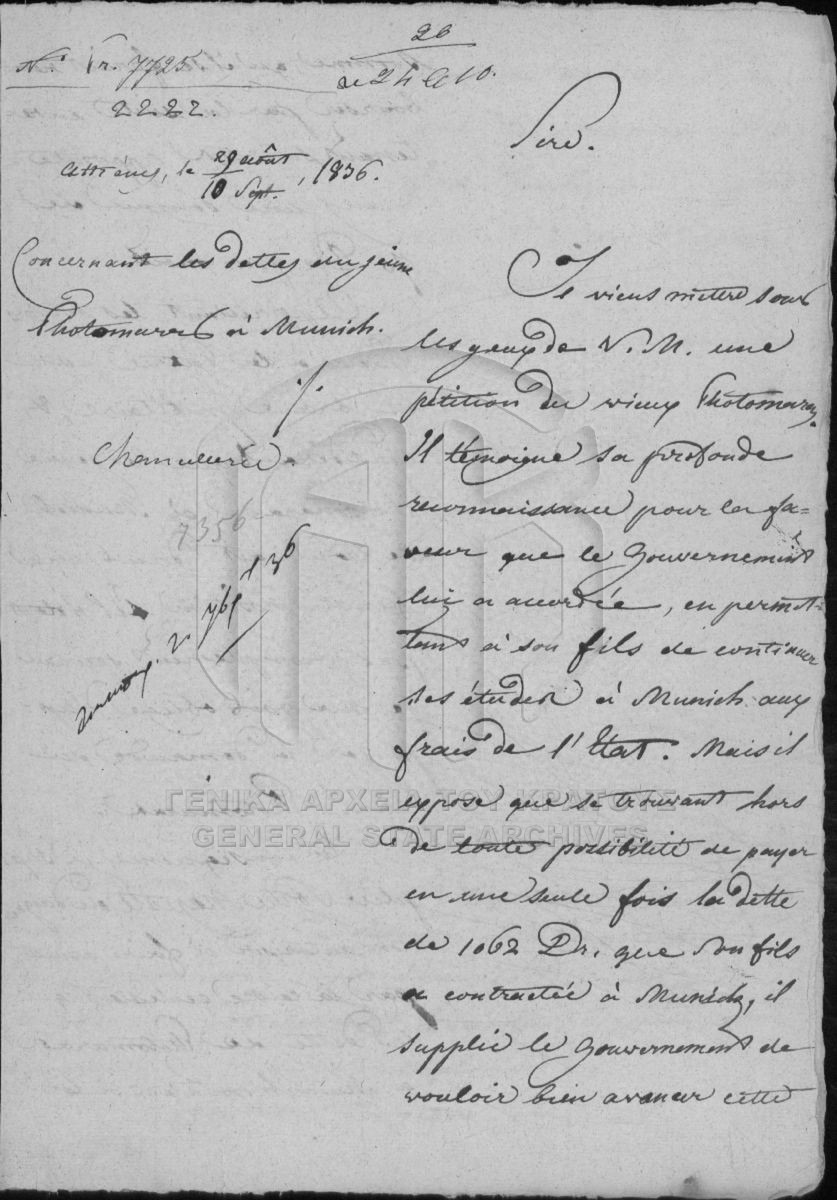 No. Pr. 7725
2222.
26
ae 24 C 10.
Athènes, le 29 août / 10 Sept., 1836.
Concernant les dettes du jeune
Photomaras à Munich.
./.
Chancellerie
7356
761
36
Sire.
Je viens mettre sous
les yeux de V. M. une
pétition du vieux Photomaras.
Il témoigne sa profonde
reconnaissance pour la fa-
veur que le Gouvernement
lui a accordée, en permet-
tant à son fils de continuer
ses études à Munich aux
frais de l'Etat. Mais il
expose que se trouvant hors
de toute possibilité de payer
en une seule fois la dette
de 1062 Dr. que son fils
a contractée à Munich, il
supplie le Gouvernement de
vouloir bien avancer cette
ΓΕΝΙΚΑ ΑΡΧΕΙΑ ΤΟΥ ΚΡΑΤΟΥΣ
GENERAL STATE ARCHIVES